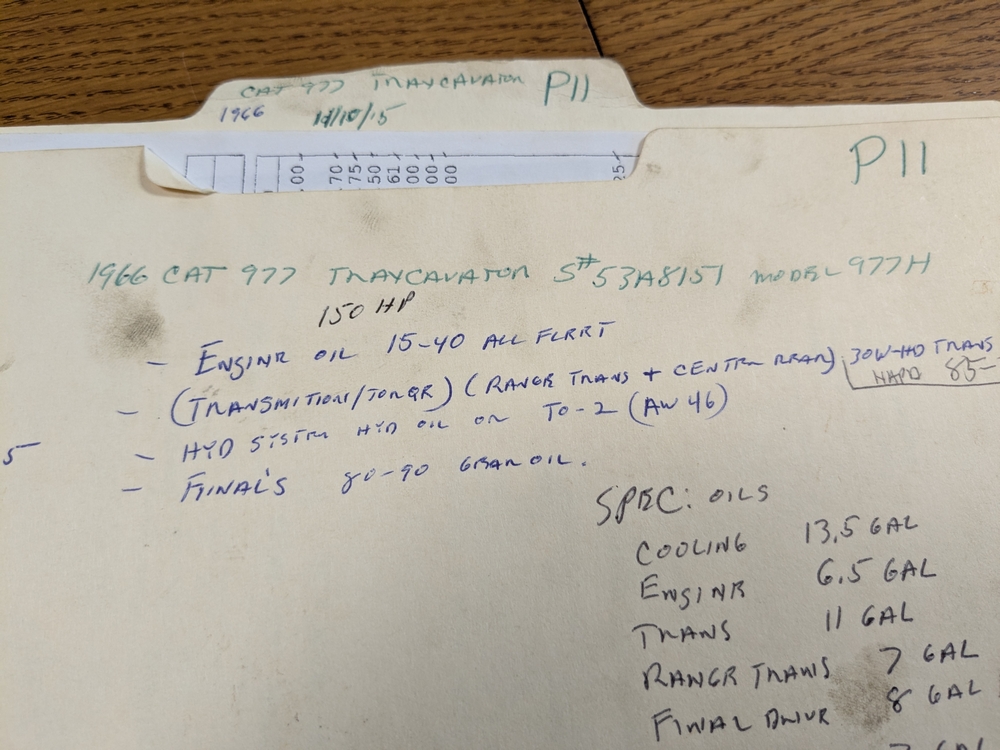 CAT 977 TRAXCAVATOR P11
1966 11/10/15
00
70
75
50
61
00
00
00
25
P11
1966 CAT 977 TRAXCAVATOR S# 53A8151 MODEL 977H
150 HP
- ENGINE OIL 15-40 ALL FLEET
- (TRANSMITION/TORQR) (RANGE TRANS + CENTER REAR) 30W-HD TRANS
NAPA 85-
- HYD SYSTEM HYD OIL OR TO-2 (AW 46)
5
- FIINAL'S 80-90 GEAR OIL.
SPEC: OILS
COOLING 13.5 GAL
ENGINE 6.5 GAL
TRANS 11 GAL
RANGE TRANS 7 GAL
FINAL DRIVE 8 GAL
7 GAL